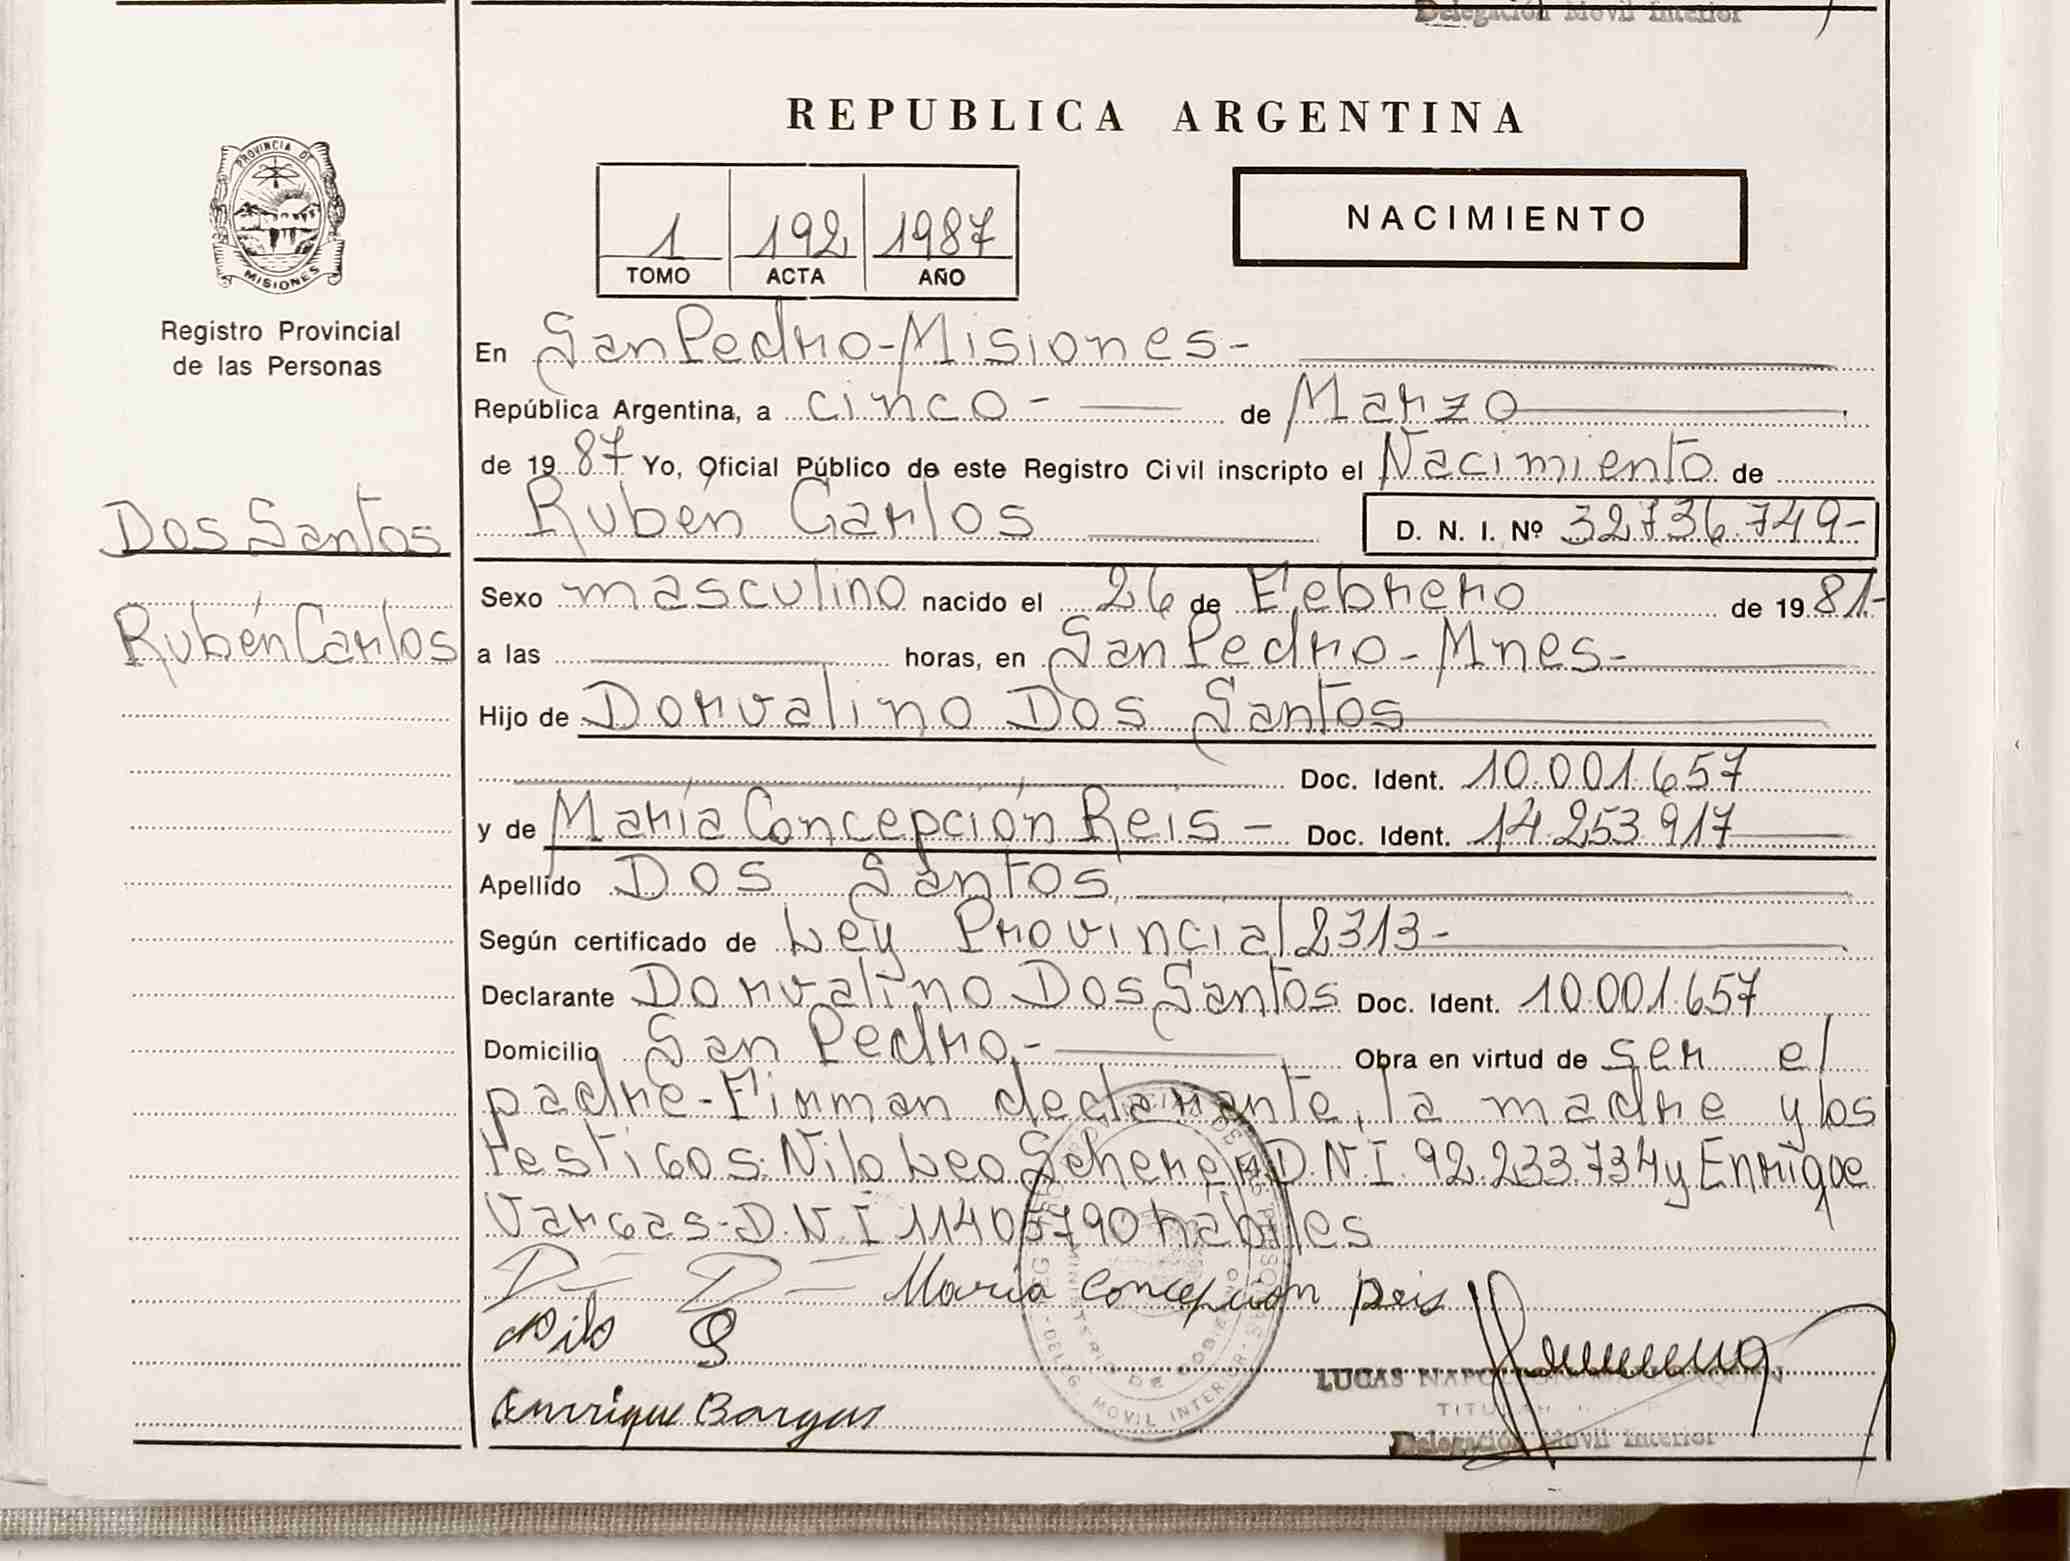 Delegación Movil Interior
REPUBLICA ARGENTINA
PROVINCIA DE
MISIONES
Registro Provincial
de las Personas
1 192 1987
TOMO ACTA AÑO
NACIMIENTO
Dos Santos
Rubén Carlos
En San Pedro-Misiones-
República Argentina, a cinco- de Marzo
de 1987 Yo, Oficial Público de este Registro Civil inscripto el Nacimiento de
Rubén Carlos D. N. I. Nº 32736.749-
Sexo masculino nacido el 26 de Febrero de 1981-
a las horas, en San Pedro-Mnes-
Hijo de Dorvalino Dos Santos
Doc. Ident. 10.001.657
y de María Concepción Reis- Doc. Ident. 14.253.917
Apellido Dos Santos
Según certificado de Ley Provincial 2313-
Declarante Dorvalino Dos Santos Doc. Ident. 10.001.657
Domicilio San Pedro.- Obra en virtud de ser el
padre-Firman declarante, la madre y los
testigos: Nilo Leo Scherer D.N.I. 92.233.734 y Enrique
Vargas-D.N.I 11405790 habiles
D D María Concepción Reis
Nilo S
Enrrique Bargas
LUCAS
TITULAR
Delegación Movil Interior
MINISTERIO DE GOBIERNO
DELEG. MOVIL INTERIOR